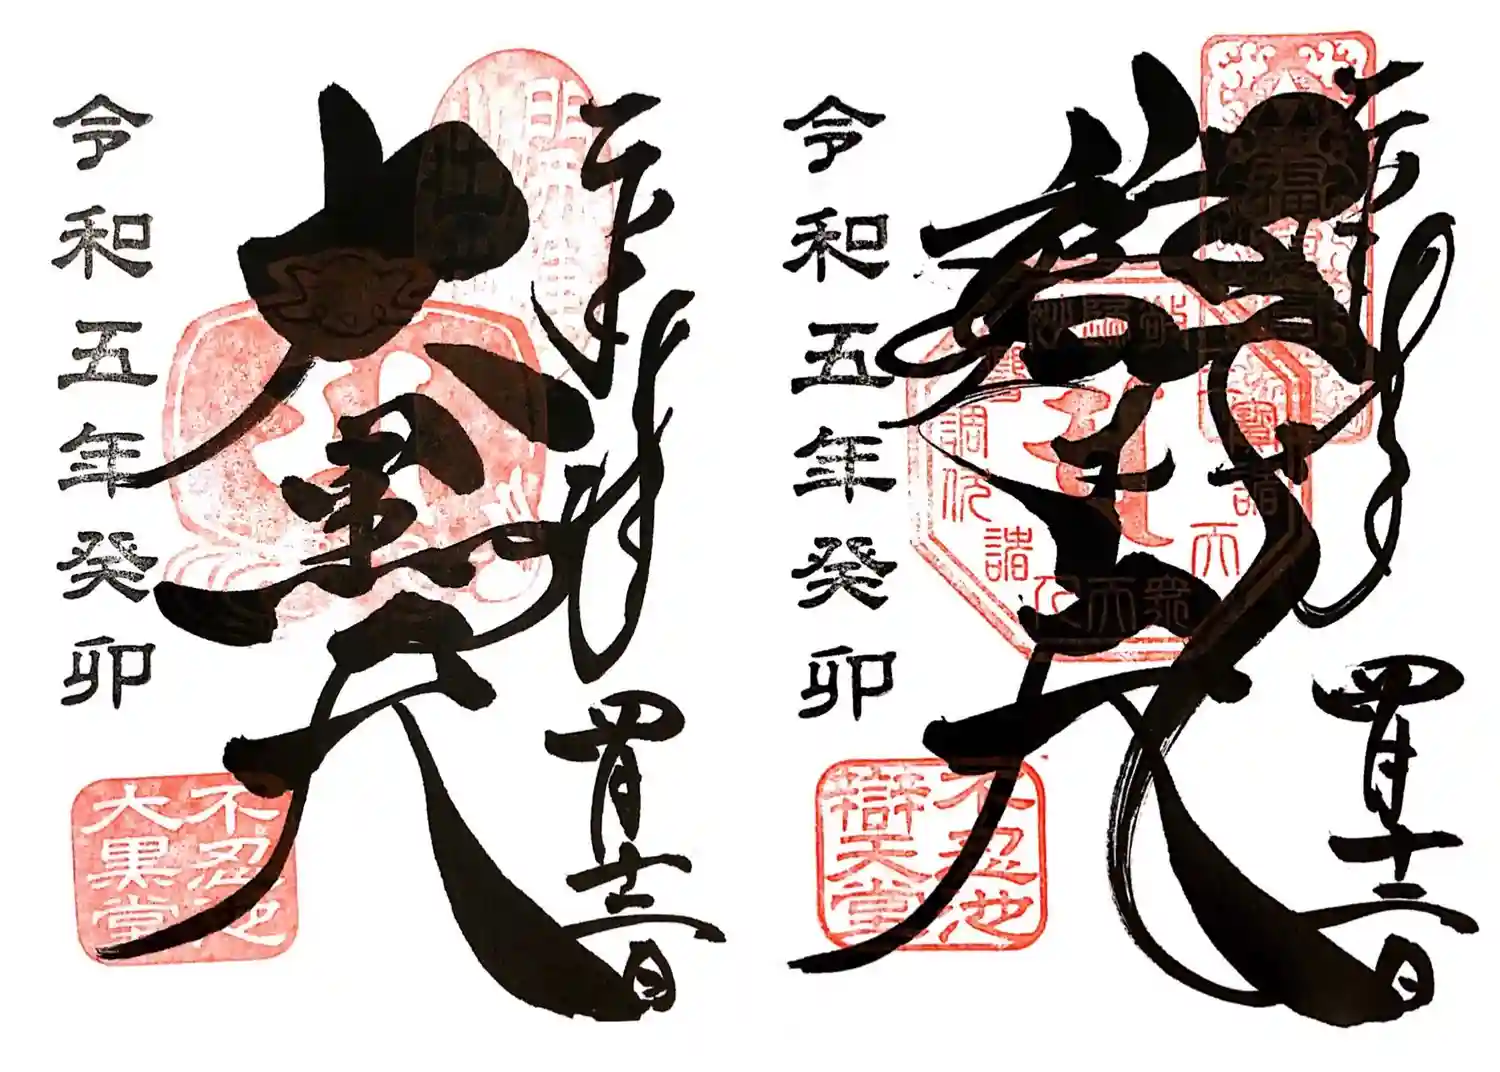 奉拝
四月十二日
大黒天
令和五年癸卯
不忍池
大黒堂
奉拝
四月十二日
辯才天
令和五年癸卯
不忍池
辯天堂